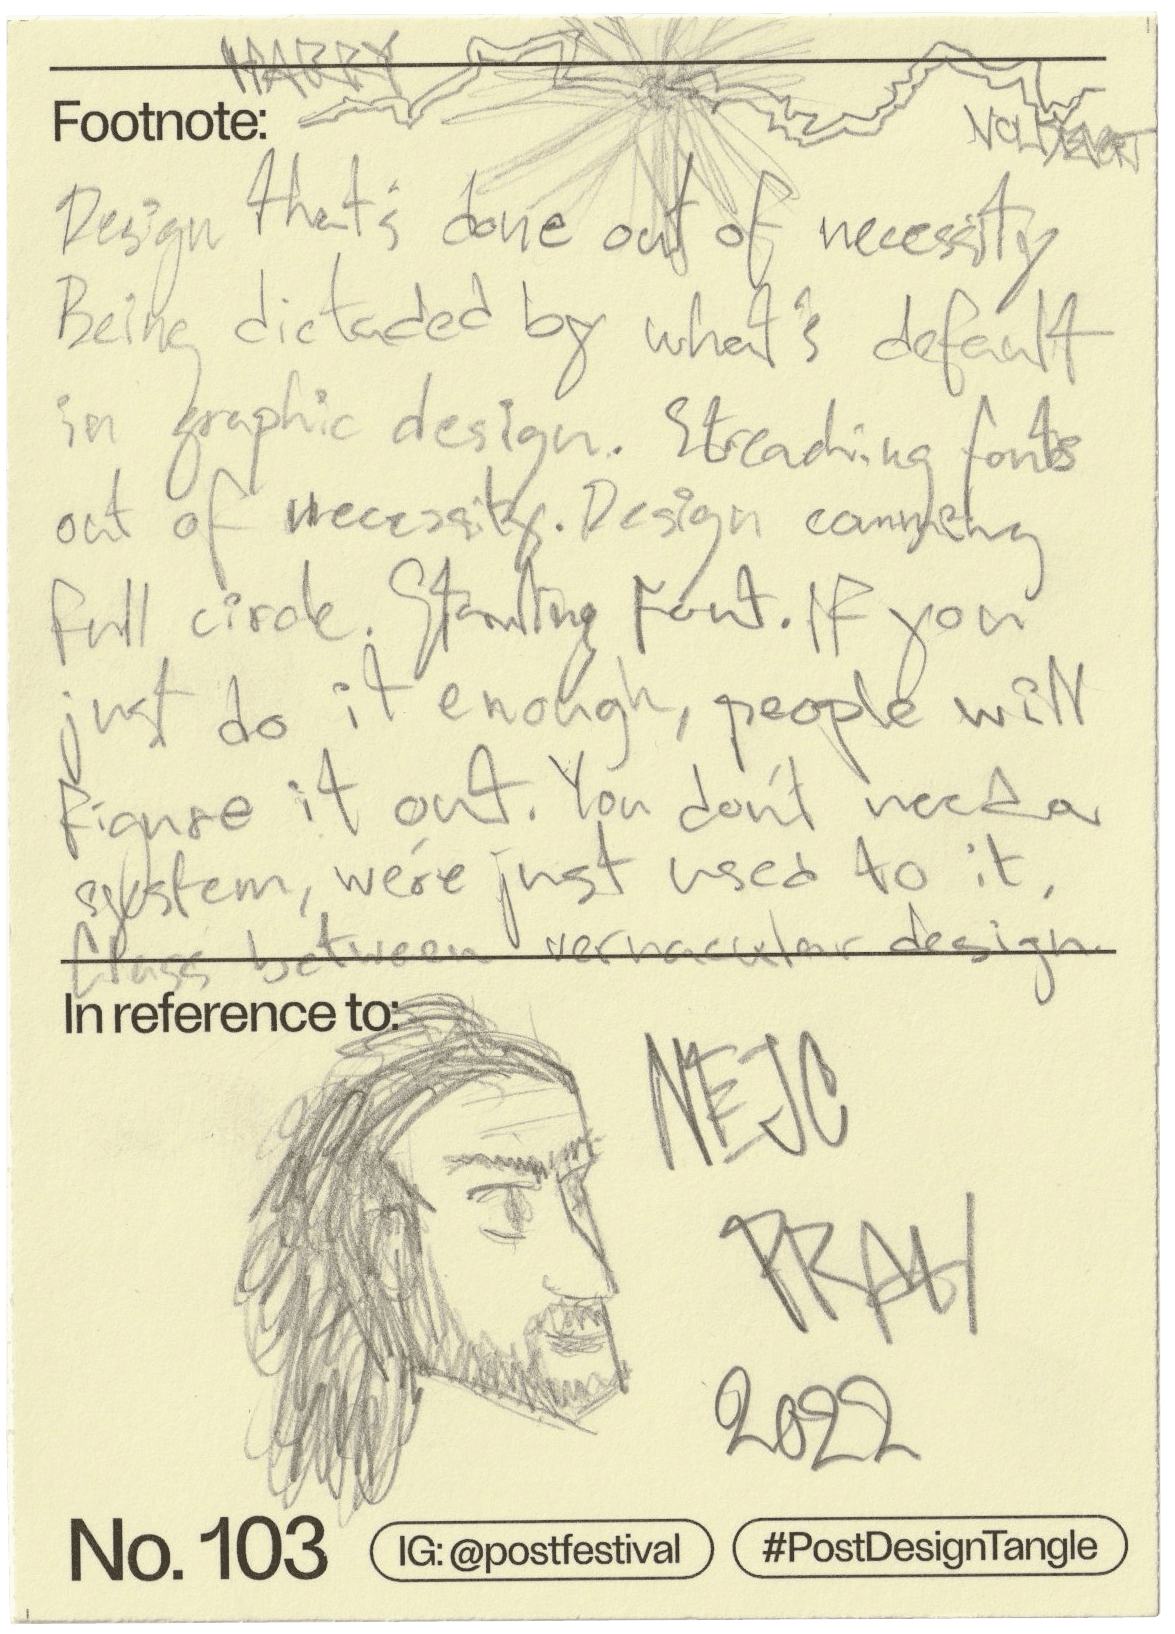 HARRY
Footnote:
VOLDEMORT
Design that's done out of necessity
Being dictaded by what's default
in graphic design. Streaching fonts
out of necessity. Design comming
full circle. Standing Font. If you
just do it enough, people will
figure it out. You don't need a
system, we're just used to it.
Class between vernacular design.
In reference to:
NEJC
PRAH
2022
No. 103
IG: @postfestival
#PostDesignTangle